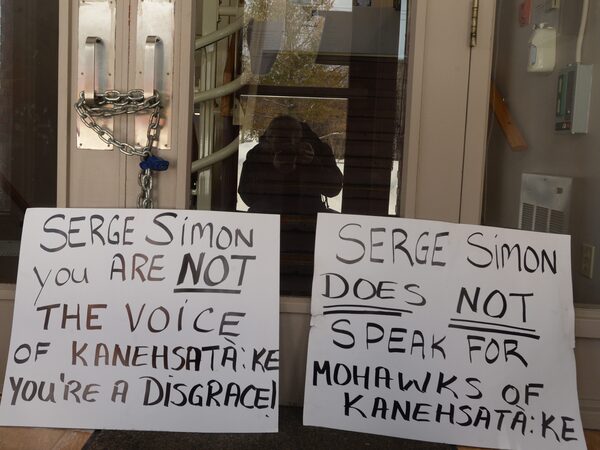 SERGE SIMON
you ARE NOT
THE VOICE
OF KANEHSATÀ:KE
YOU'RE A DISGRACE!
SERGE SIMON
DOES NOT
SPEAK FOR
MOHAWKS OF
KANEHSATÀ:KE